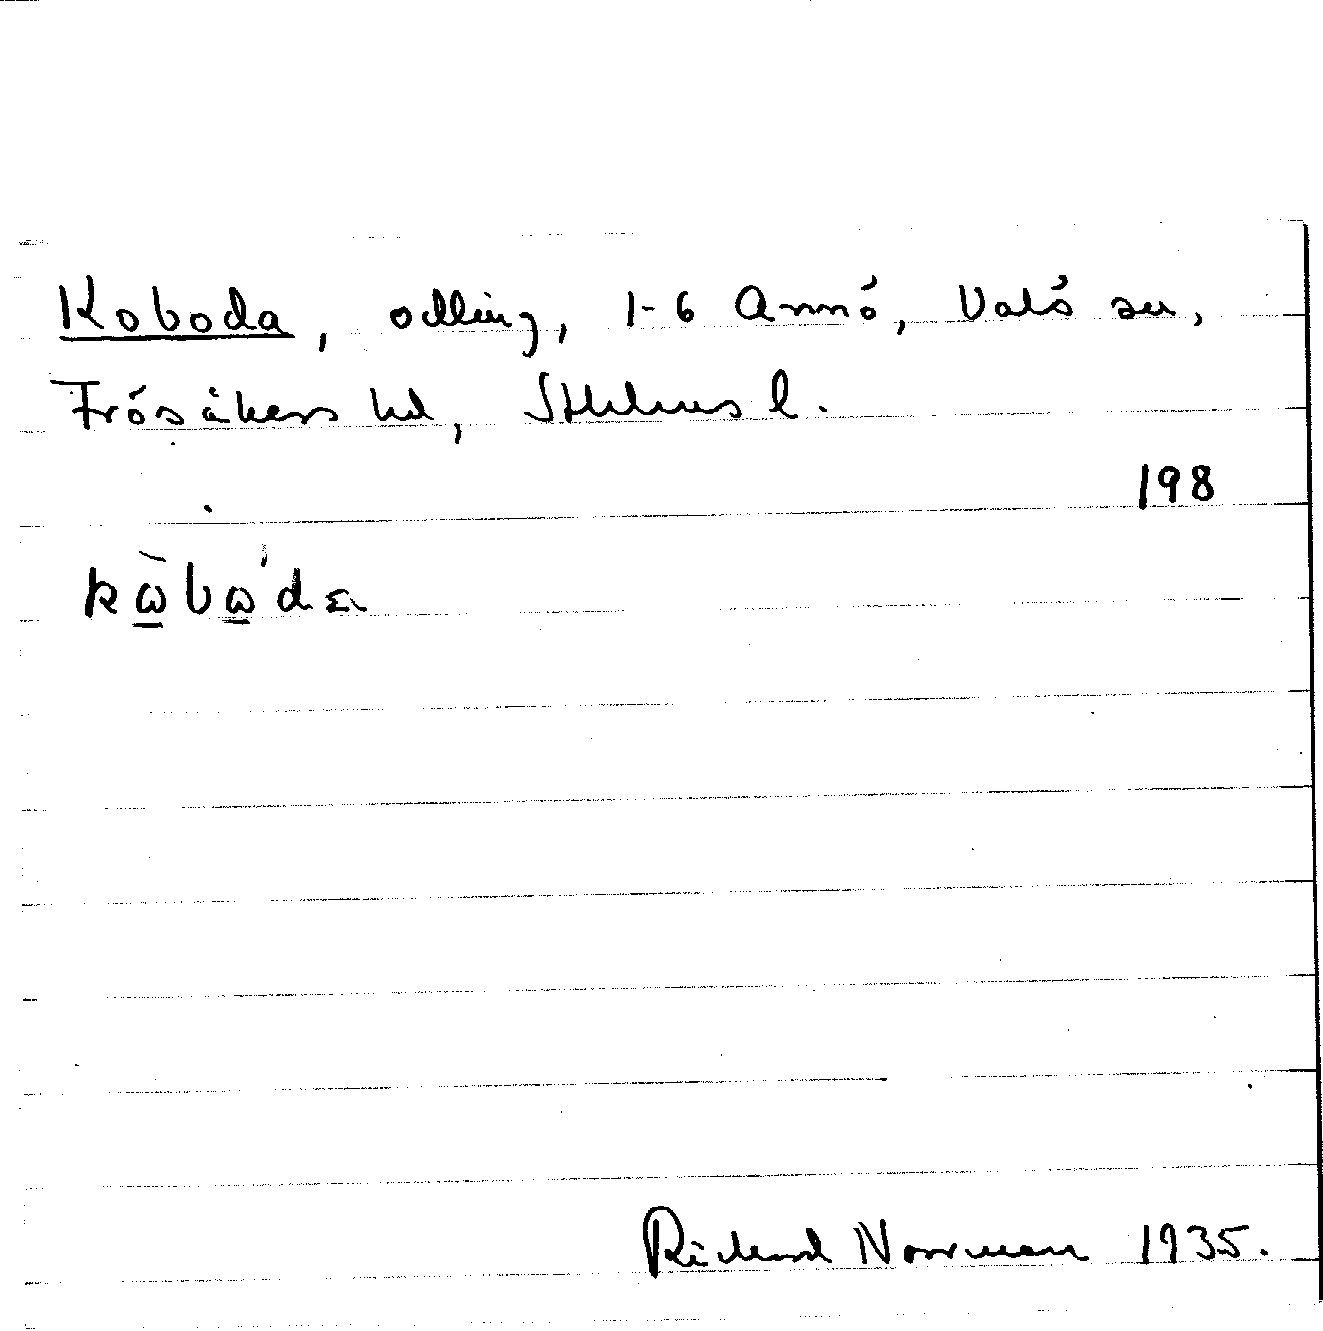 Koboda, odling, 1-6 Annö, Valö sn,
Frösåkers hd, Sthlms l.
198
kὼbω̲'da
Richard Norrman 1935.